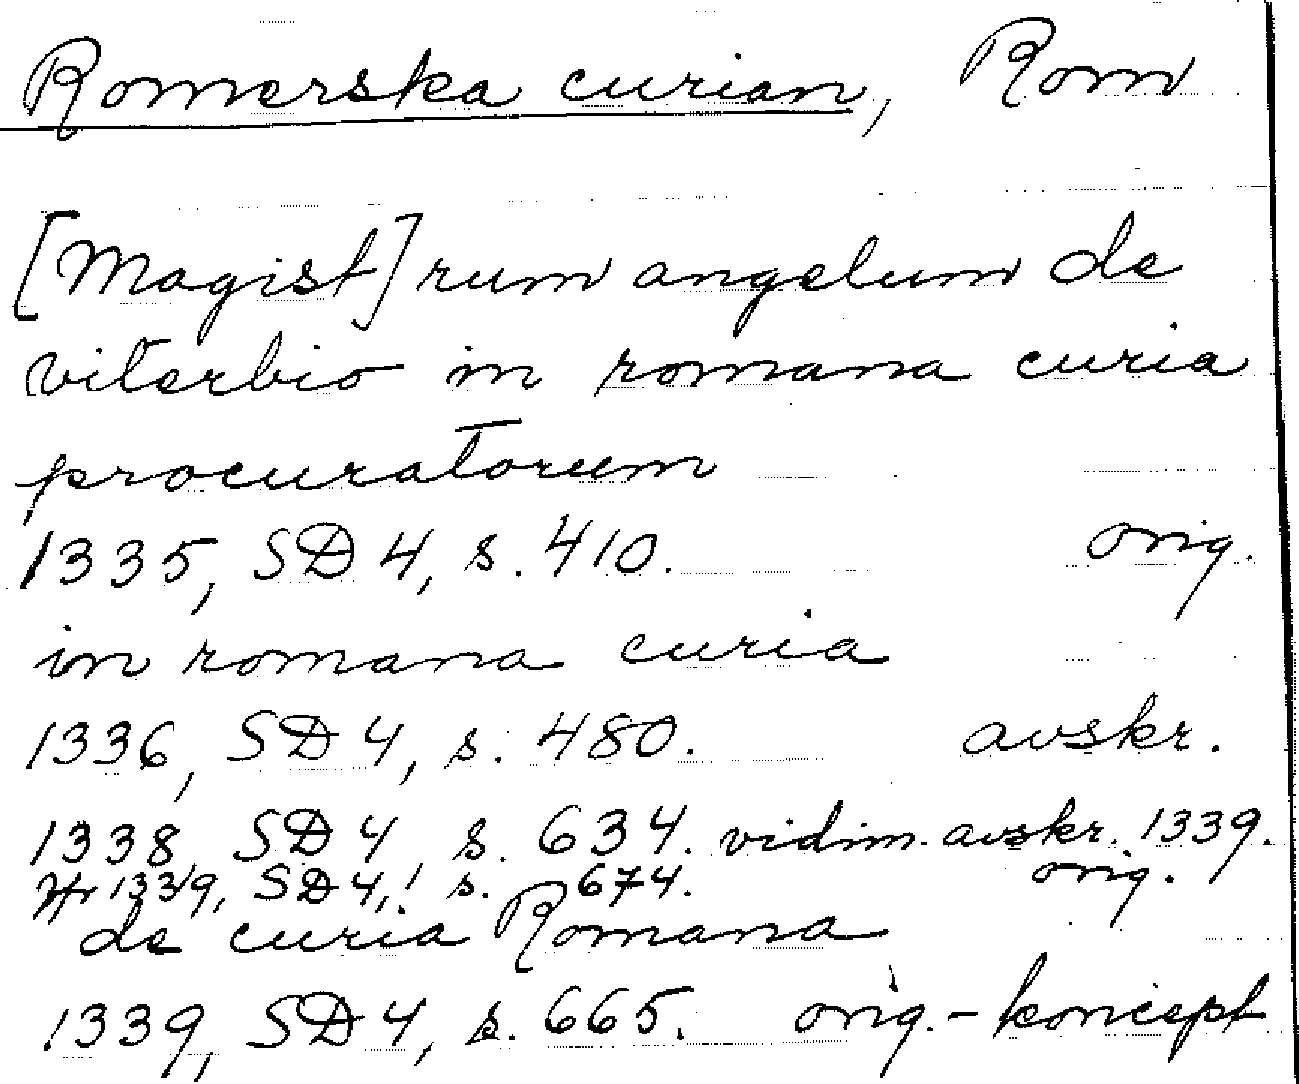 Romerska curian, Rom
[Magist]rum angelum de
viterbio in romana curia
procuratorum
1335, SD 4, s. 410. orig.
in romana curia
1336, SD 4, s. 480. avskr.
1338, SD 4, s. 634. vidim. avskr. 1339.
1339, SD 4, s. 674. orig.
de curia Romana
1339, SD 4, s. 665. orig.-koncept